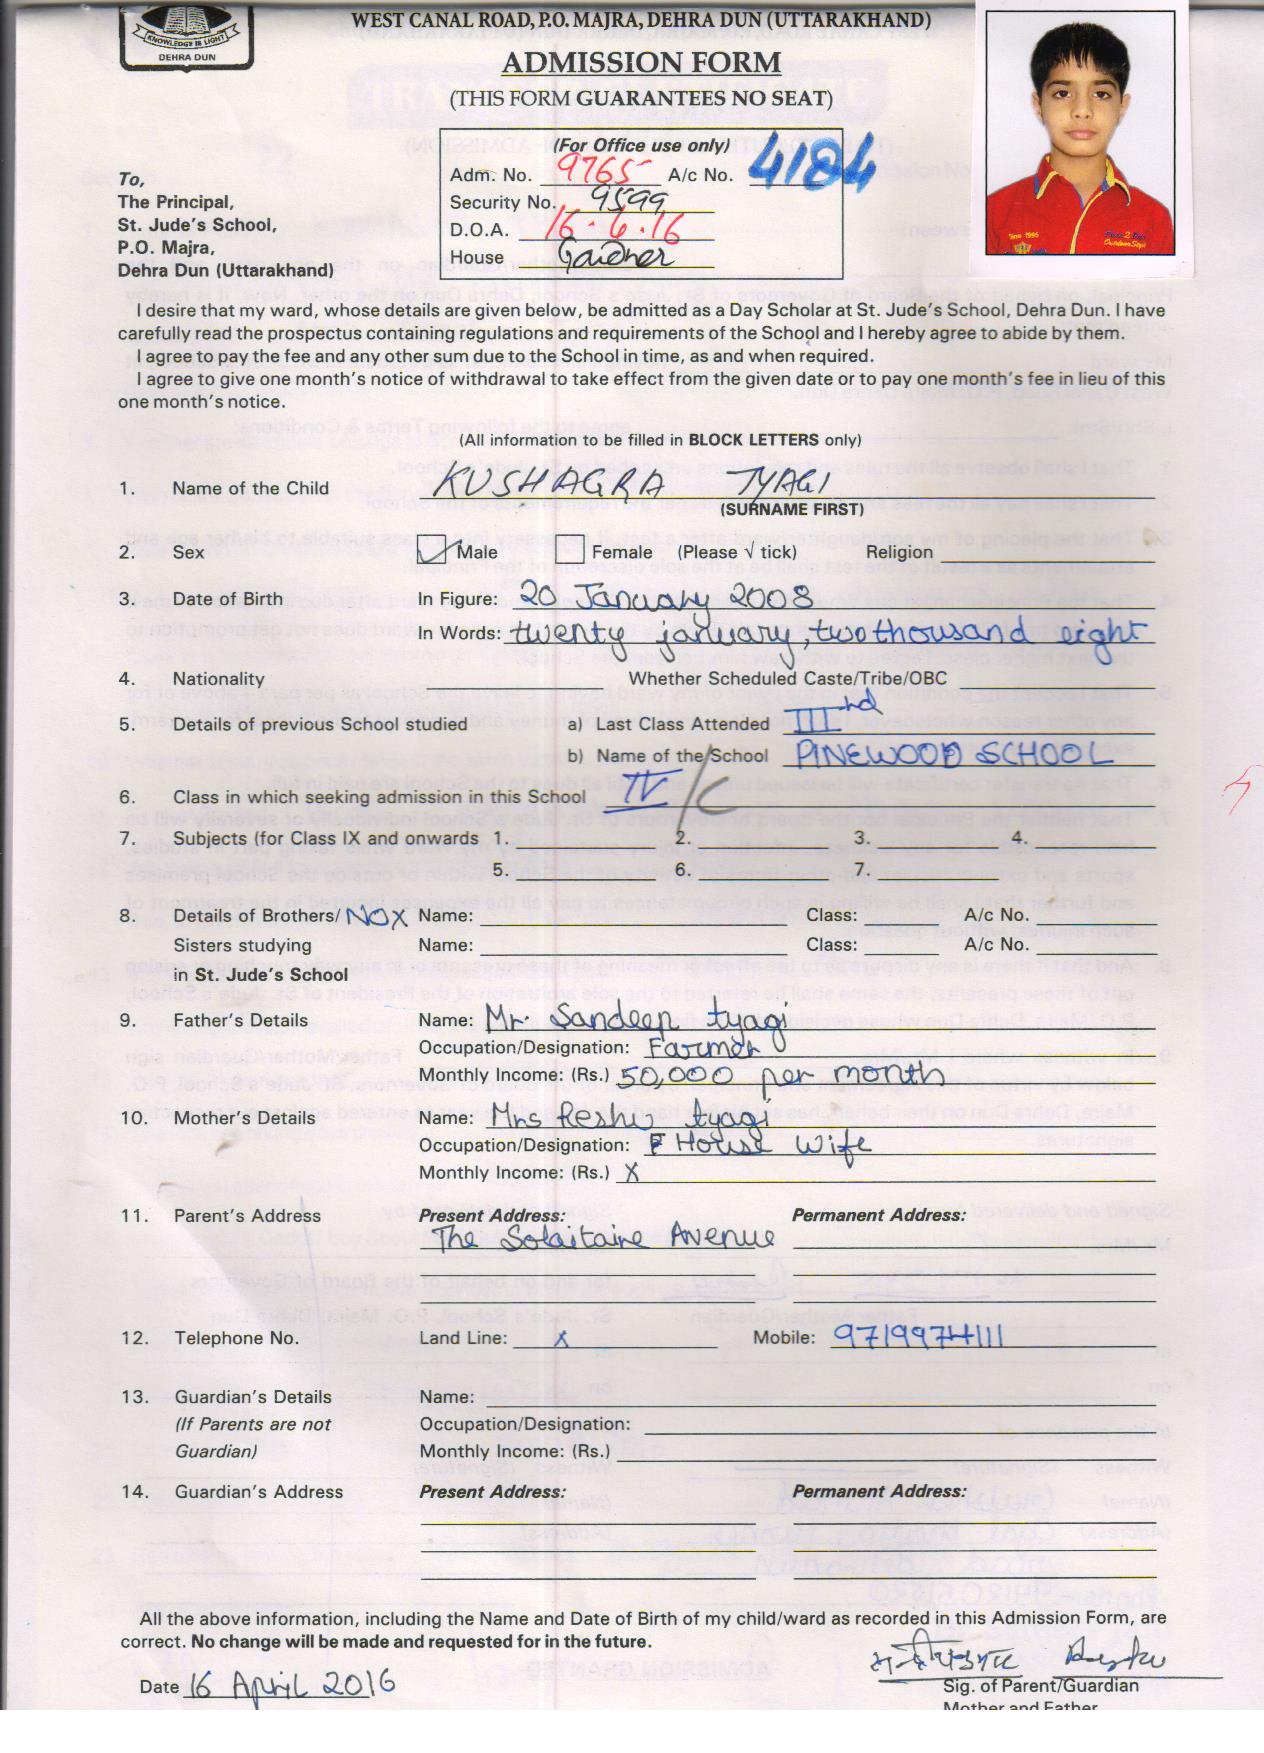 KNOWLEDGE IS LIGHT
DEHRA DUN
WEST CANAL ROAD, P.O. MAJRA, DEHRA DUN (UTTARAKHAND)
ADMISSION FORM
(THIS FORM GUARANTEES NO SEAT)
(For Office use only)
Adm. No. 9765 A/c No. 4184
Security No. 9599
D.O.A. 16.4.16
House Gardner
To,
The Principal,
St. Jude's School,
P.O. Majra,
Dehra Dun (Uttarakhand)
I desire that my ward, whose details are given below, be admitted as a Day Scholar at St. Jude's School, Dehra Dun. I have
carefully read the prospectus containing regulations and requirements of the School and I hereby agree to abide by them.
I agree to pay the fee and any other sum due to the School in time, as and when required.
I agree to give one month's notice of withdrawal to take effect from the given date or to pay one month's fee in lieu of this
one month's notice.
(All information to be filled in BLOCK LETTERS only)
1. Name of the Child KUSHAGRA TYAGI
(SURNAME FIRST)
2. Sex Male Female (Please √ tick) Religion
3. Date of Birth In Figure: 20 January 2008
In Words: twenty january, two thousand eight
4. Nationality Whether Scheduled Caste/Tribe/OBC
5. Details of previous School studied a) Last Class Attended III nd
b) Name of the School PINEWOOD SCHOOL
6. Class in which seeking admission in this School IV/C
7. Subjects (for Class IX and onwards 1. 2. 3. 4.
5. 6. 7.
8. Details of Brothers/ NO X Name: Class: A/c No.
Sisters studying Name: Class: A/c No.
in St. Jude's School
9. Father's Details Name: Mr. Sandeep tyagi
Occupation/Designation: Farmer
Monthly Income: (Rs.) 50,000 per month
10. Mother's Details Name: Mrs Reshu tyagi
Occupation/Designation: House wife
Monthly Income: (Rs.) X
11. Parent's Address Present Address: Permanent Address:
The Solaitaire Avenue
12. Telephone No. Land Line: X Mobile: 9719974111
13. Guardian's Details Name:
(If Parents are not Occupation/Designation:
Guardian) Monthly Income: (Rs.)
14. Guardian's Address Present Address: Permanent Address:
All the above information, including the Name and Date of Birth of my child/ward as recorded in this Admission Form, are
correct. No change will be made and requested for in the future.
Date 16 April 2016
Sig. of Parent/Guardian
Mother and Father